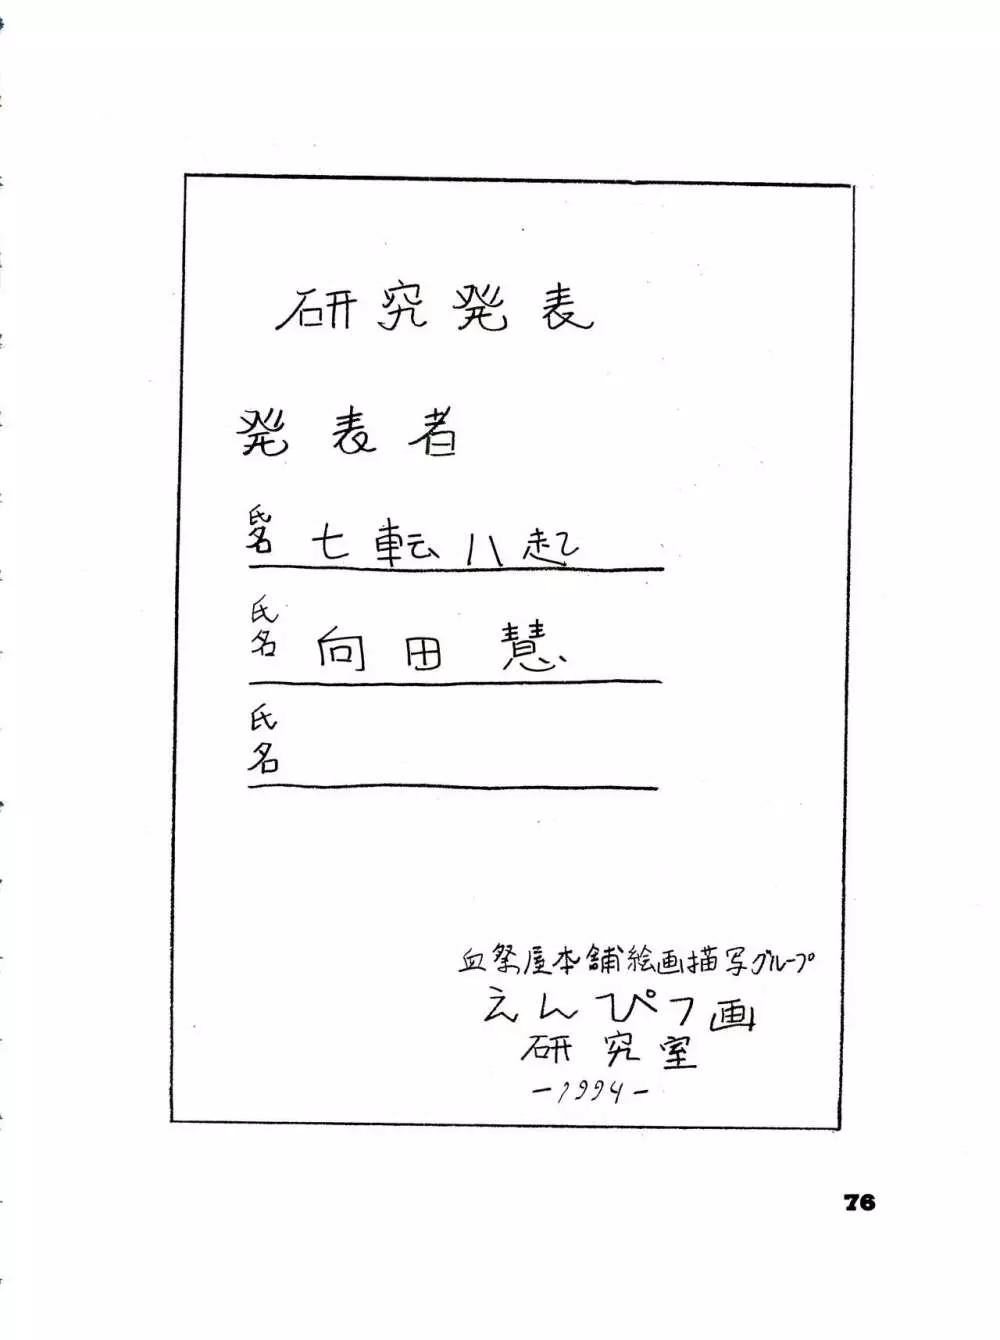 研究発表
発表者
氏名 七転八起
氏名 向田 慧
氏名
血祭屋本舗絵画描写グループ
えんぴつ画
研究室
-1994-
76